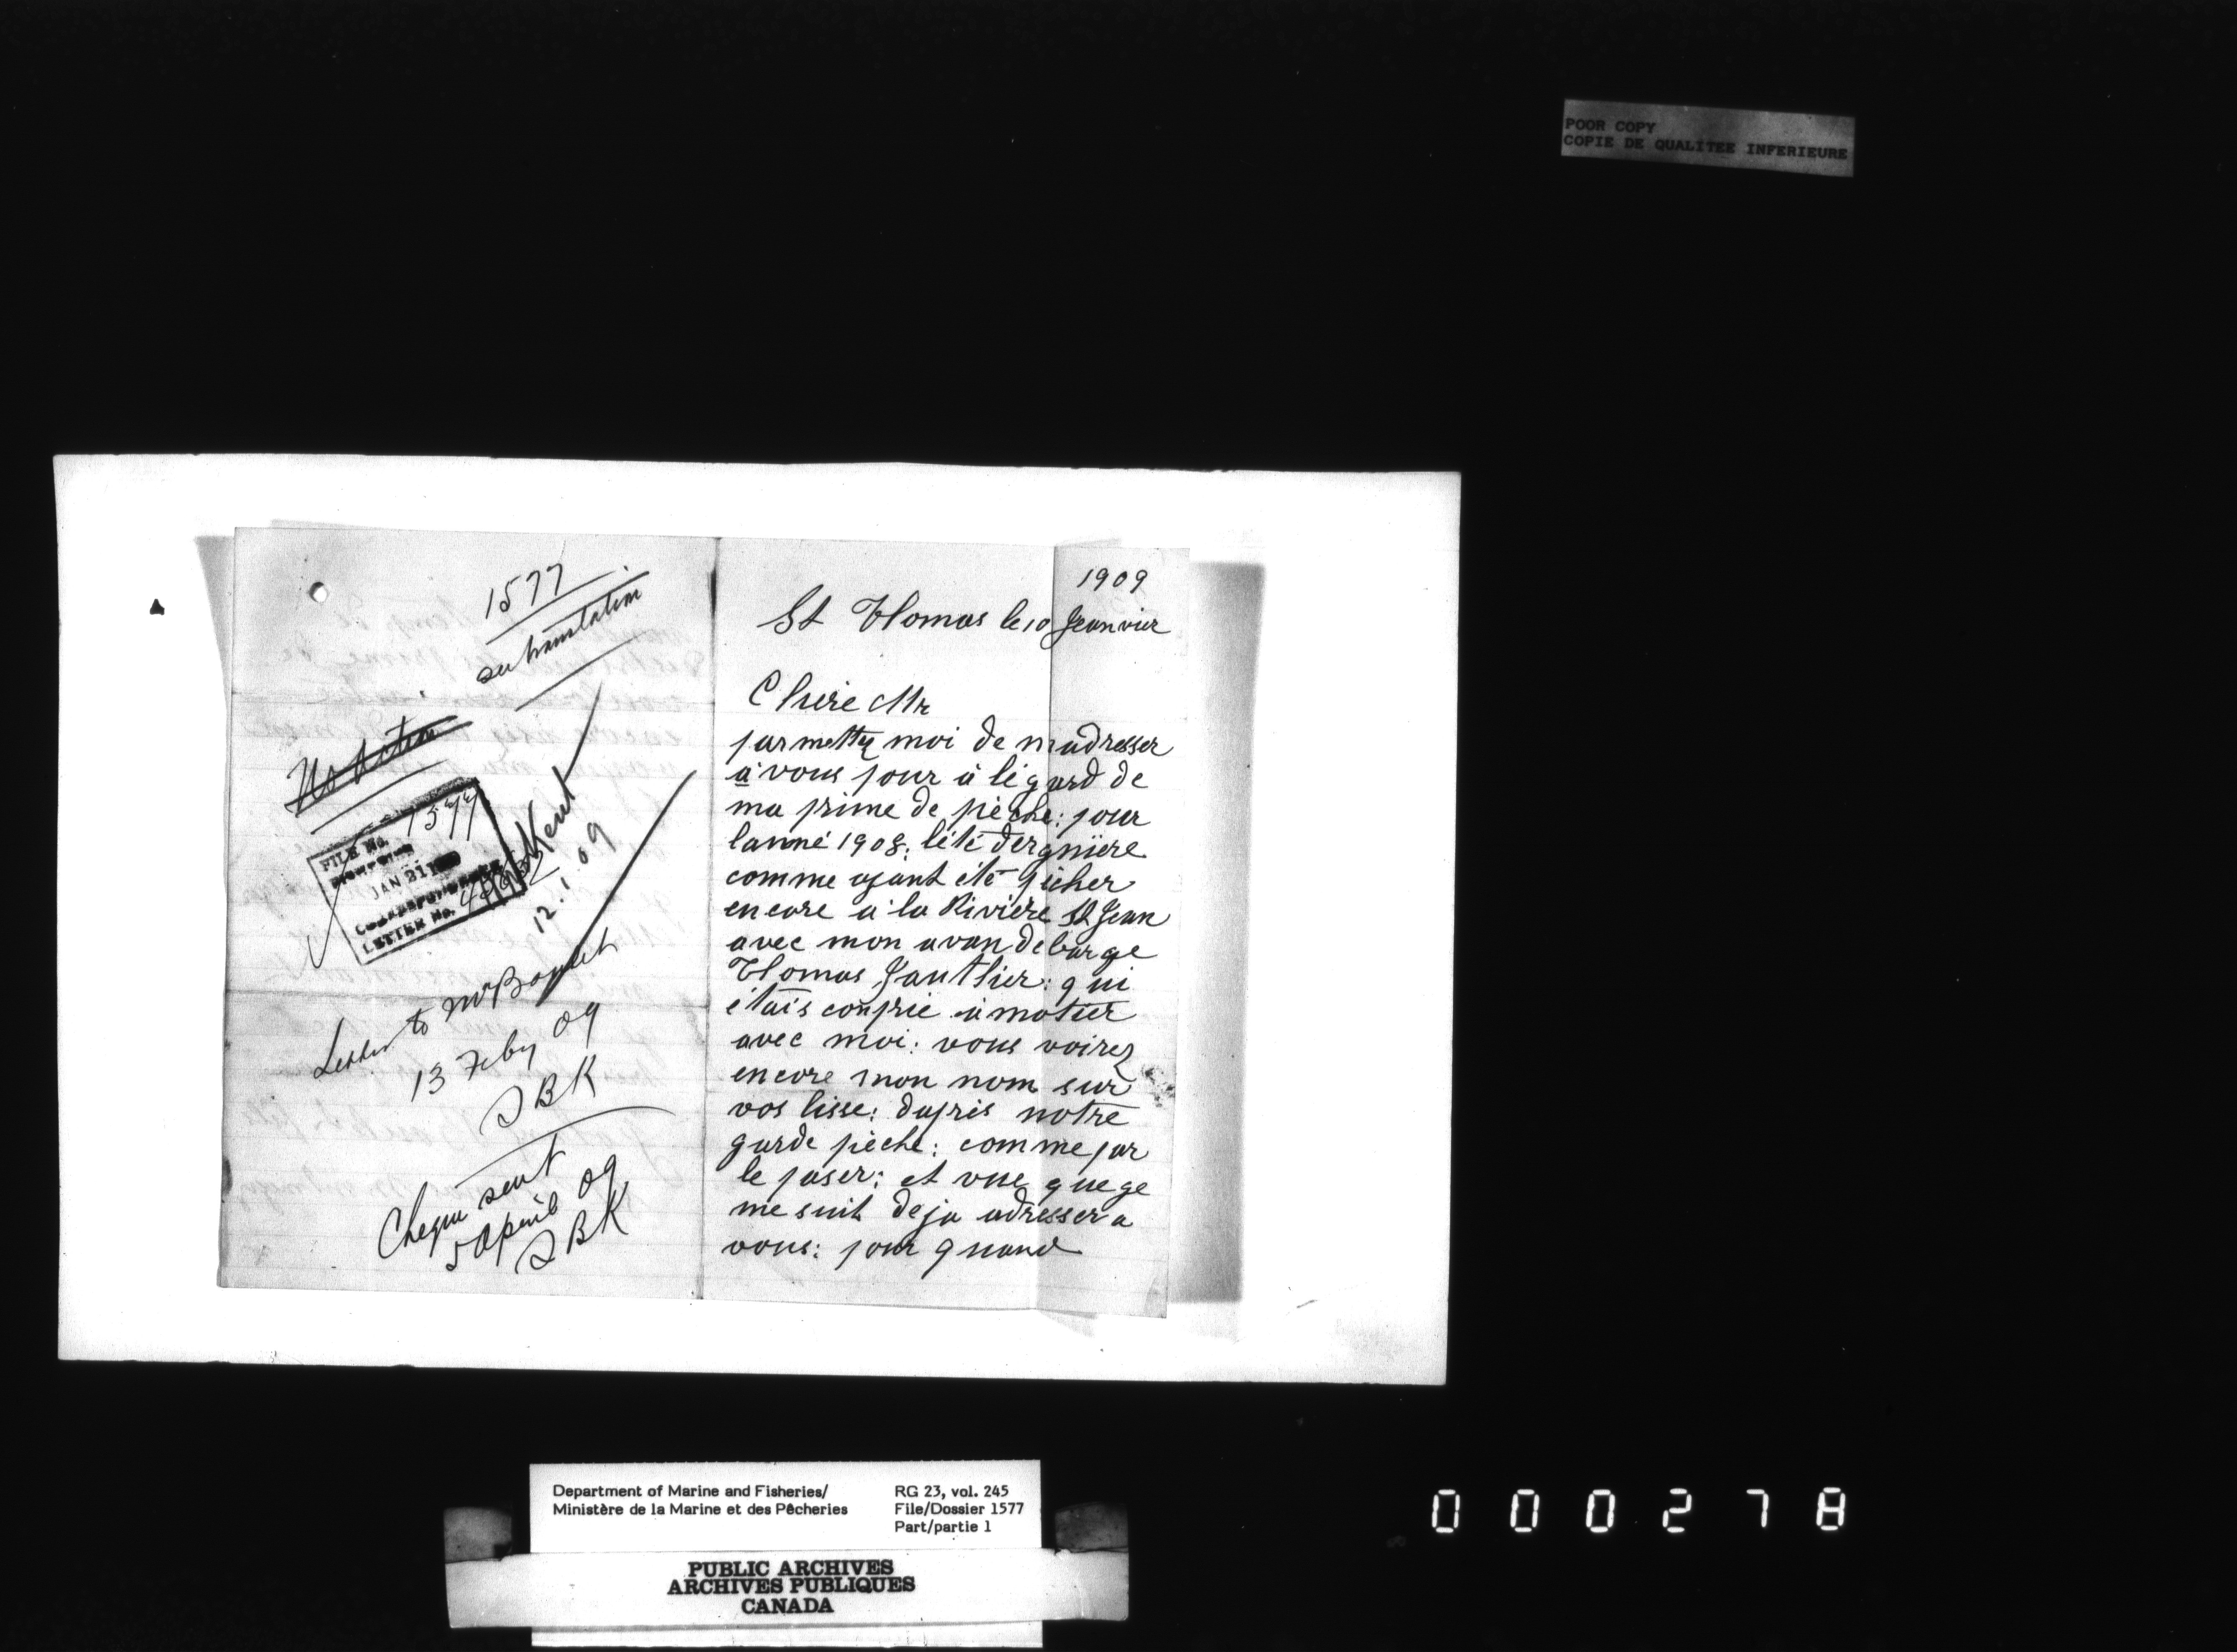 POOR COPY
COPIE DE QUALITEE INFERIEURE
1577
see translation
No Action
FILE No. 1577
JAN 21
CORRESPONDENCE
LETTER No.
Kent
12.1.09
Letter to Mr
13 Feby 09
JBK
Cheque sent
5 April 09
JBK
1909
St Thomas le 10 Jeanvier
Chère Mr
parmettez moi de madresser
a vous pour à légard de
ma prime de pèche: pour
lanné 1908: lété dergnière
comme ajant été pécher
encore à la Rivière St Jean
avec mon avan de barge
Thomas Gauthier: qui
étais conprie a motier
avec moi: vous voirez
encore mon nom sur
vos lisse: daprès notre
garde pèche: comme par
le paser: et vue que ge
me suit deja adresser a
vous: pour quand
Department of Marine and Fisheries/
Ministère de la Marine et des Pêcheries
RG 23, vol. 245
File/Dossier 1577
Part/partie 1
PUBLIC ARCHIVES
ARCHIVES PUBLIQUES
CANADA
000278